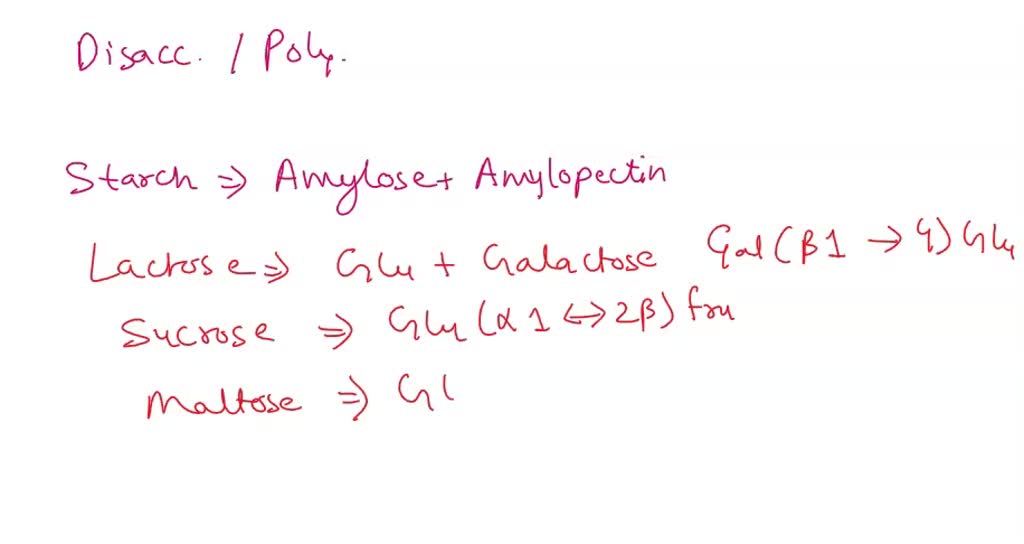 Disacc. / Poly.
Starch ⇒ Amylose + Amylopectin
Lactose ⇒ Glu + Galactose Gal(β1 → 4) Glu
Sucrose ⇒ Glu (α1 ↔ 2β) fru
Maltose ⇒ Gl